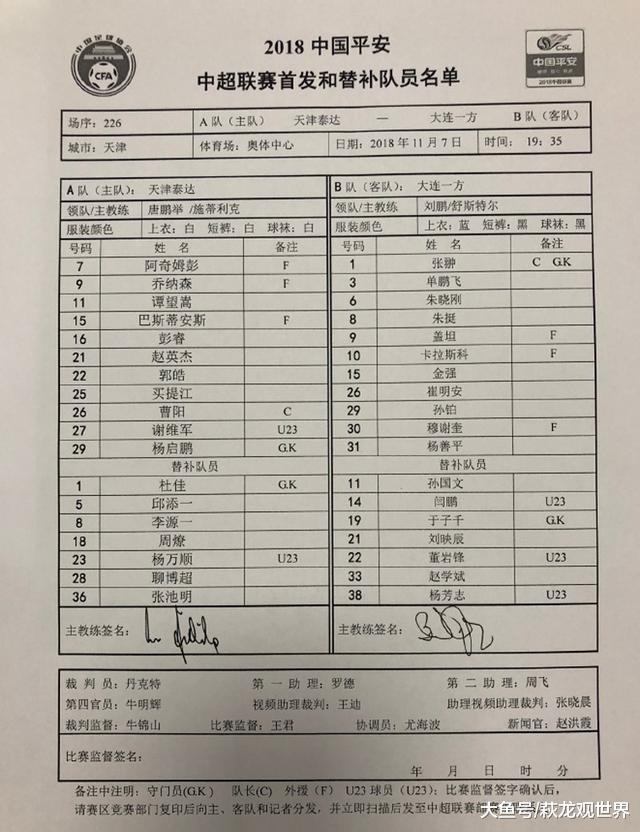 中国足球协会
CFA
CSL
中国平安
2018中超联赛
2018 中国平安
中超联赛首发和替补队员名单
场序: 226 A 队（主队） 天津泰达 — 大连一方 B 队（客队）
城市: 天津 体育场: 奥体中心 日期: 2018 年 11 月 7 日 时间: 19: 35
A 队（主队): 天津泰达
领队/主教练 唐鹏举 /施蒂利克
服装颜色 上衣: 白 短裤: 白 球袜: 白
号码 姓 名 备注
7 阿奇姆彭 F
9 乔纳森 F
11 谭望嵩
15 巴斯蒂安斯 F
16 彭睿
21 赵英杰
22 郭皓
25 买提江
26 曹阳 C
27 谢维军 U23
29 杨启鹏 G.K
替补队员
1 杜佳 G.K
5 邱添一
8 李源一
18 周燎
23 杨万顺 U23
28 聊博超
36 张池明
主教练签名:
B 队（客队): 大连一方
领队/主教练 刘鹏/舒斯特尔
服装颜色 上衣: 蓝 短裤: 黑 球袜: 黑
号码 姓 名 备注
1 张翀 C G.K
3 单鹏飞
6 朱晓刚
8 朱挺
9 盖坦 F
10 卡拉斯科 F
15 金强
26 崔明安
29 孙铂
30 穆谢奎 F
31 杨善平
替补队员
11 孙国文
14 闫鹏 U23
19 于子千 G.K
21 刘映辰
22 董岩锋 U23
33 赵学斌
38 杨芳志 U23
主教练签名:
裁 判 员: 丹克特 第 一 助 理: 罗德 第 二 助 理: 周飞
第四官员: 牛明辉 视频助理裁判: 王迪 助理视频助理裁判: 张晓晨
裁判监督: 牛锦山 比赛监督: 王君 协调员: 尤海波 新闻官: 赵洪霞
比赛监督签名:
年 月 日 时 分
备注中注明: 守门员(G.K ) 队长(C) 外援（F）U23 球员（U23）; 比赛监督签字确认后,
请赛区竞赛部门复印后向主、客队和记者分发，并立即扫描后发至中超联赛
大鱼号/萩龙观世界